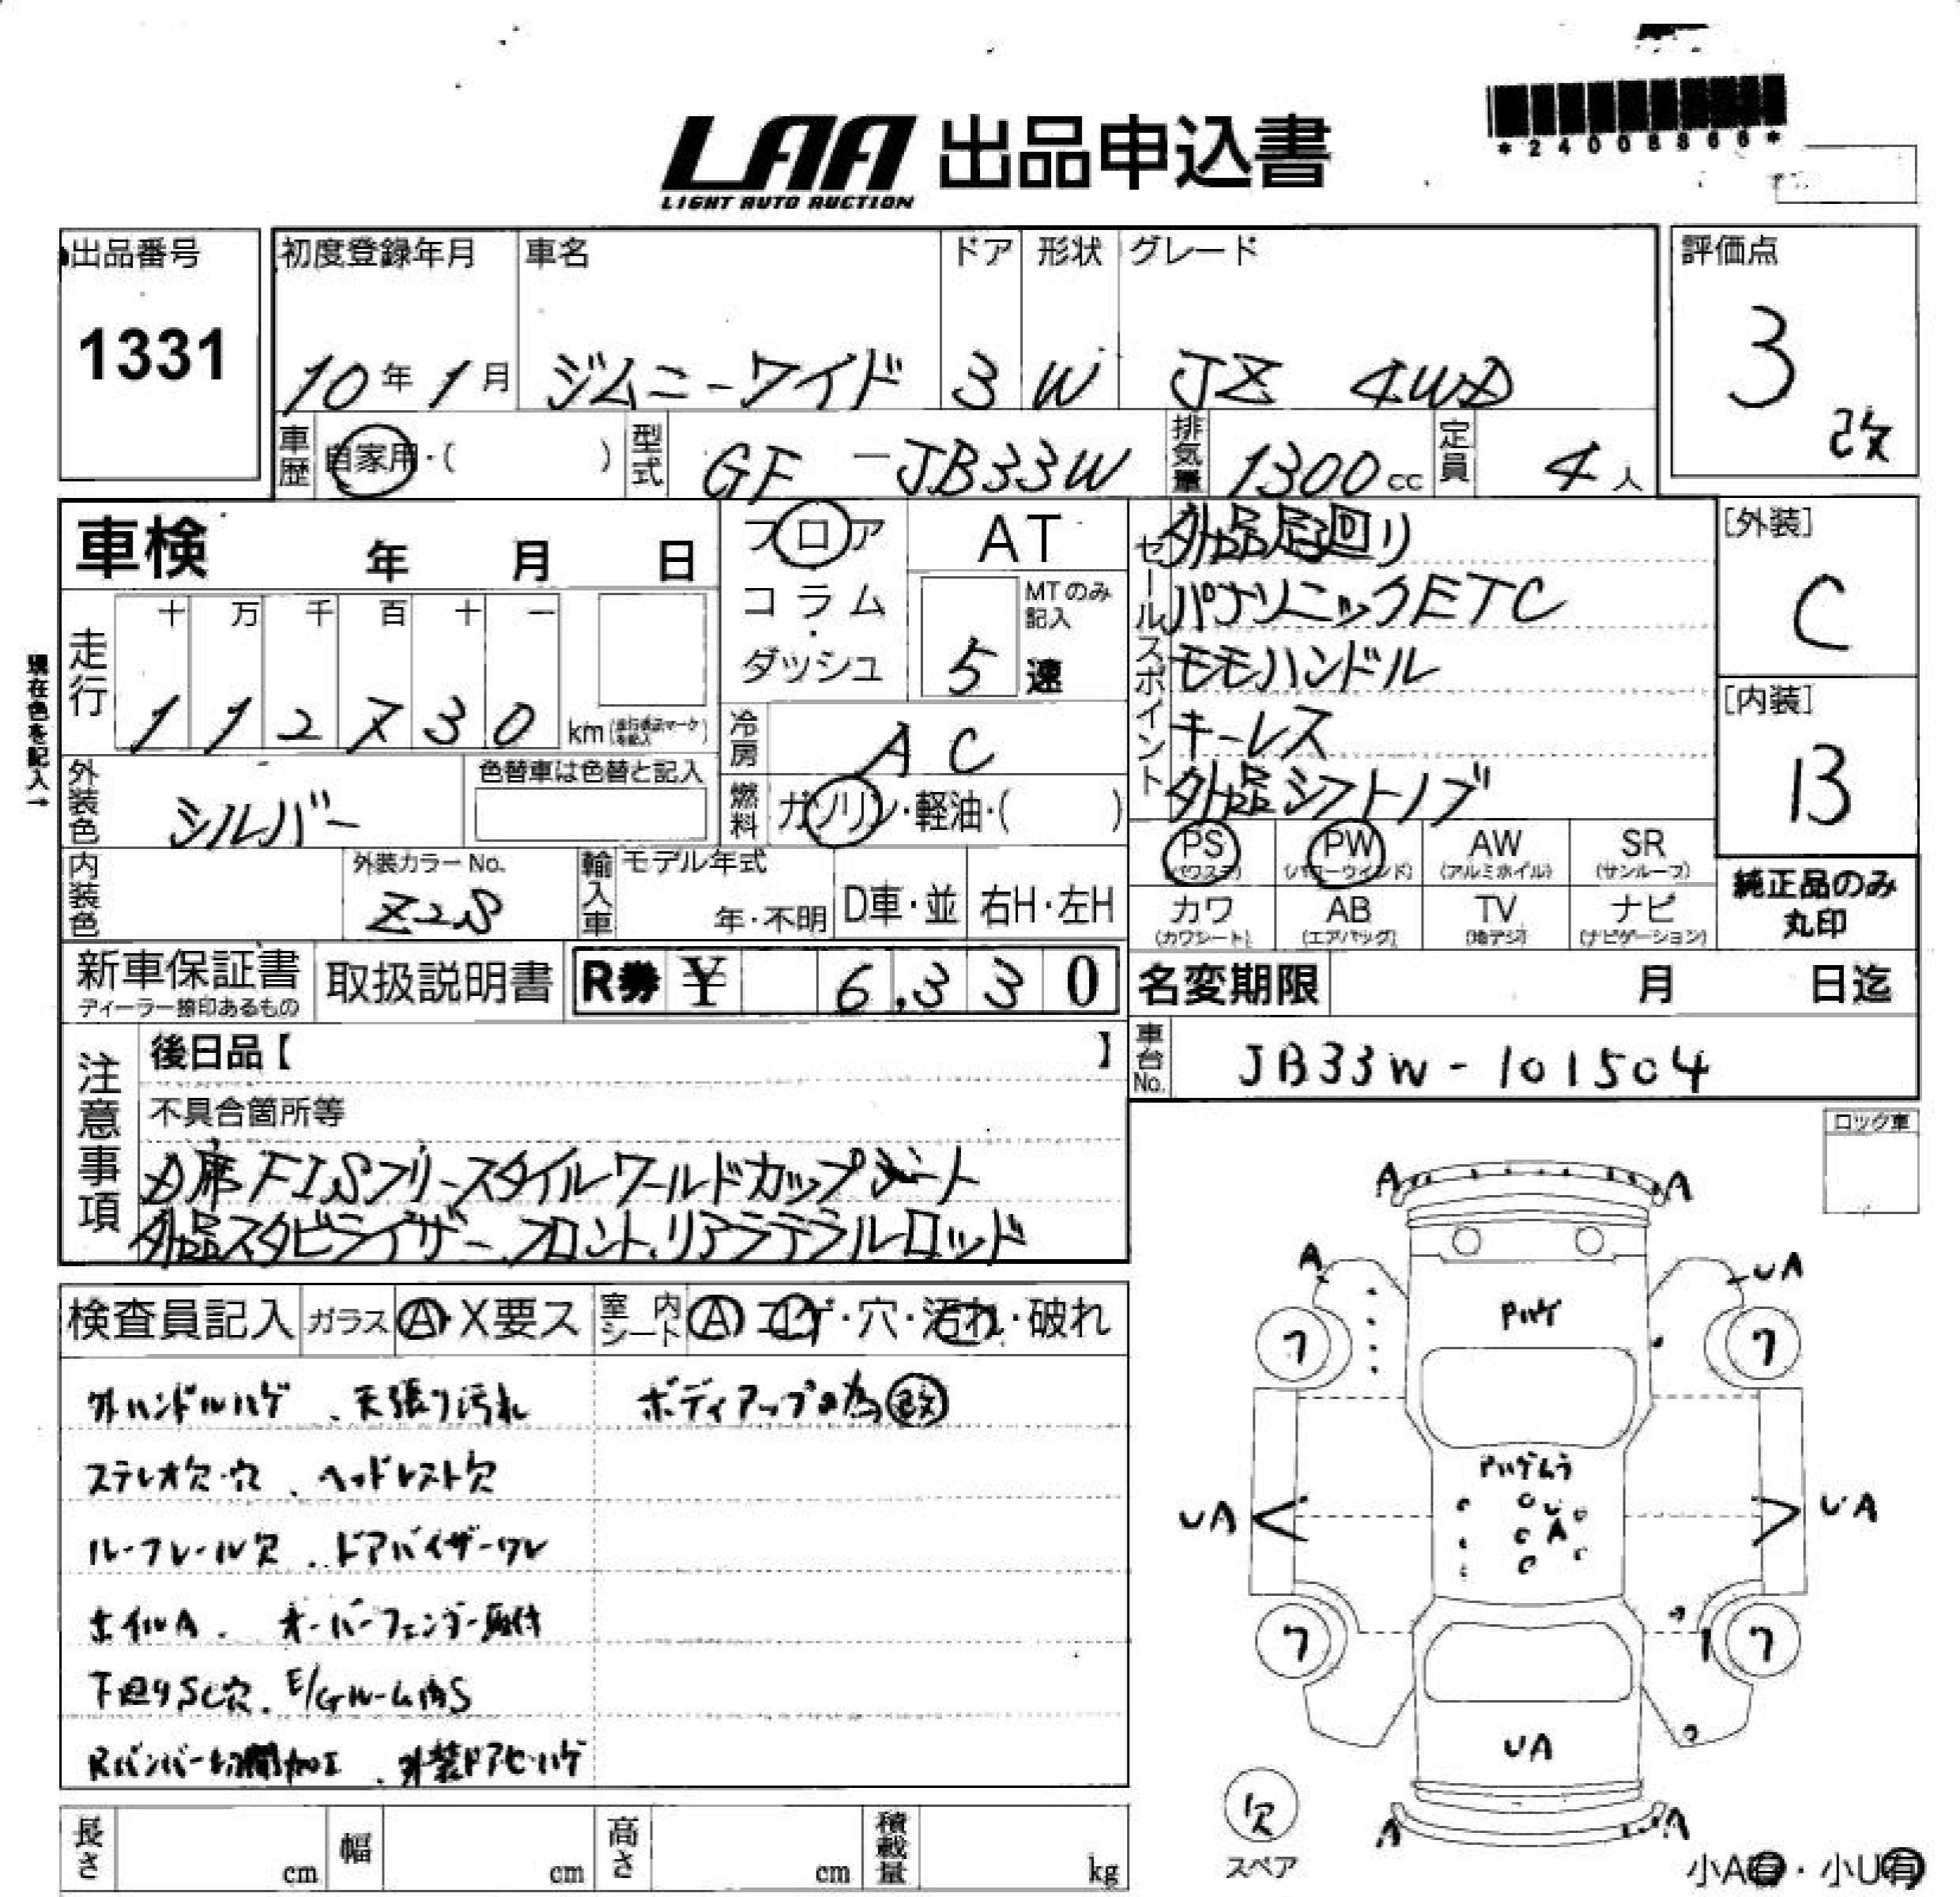 *24008866*
LAA 出品申込書
LIGHT AUTO AUCTION
出品番号 初度登録年月 車名 ドア 形状 グレード 評価点
1331 10年1月 ジムニーワイド 3 W JZ 4WD 3 改
車歴 自家用・( ) 型式 GF-JB33W 排気量 1300cc 定員 4人
車検 年 月 日 フロア AT
コラム・ダッシュ MTのみ記入 5速
セールスポイント 外品足回り
パナソニックETC
モモハンドル
キーレス
外品シフトノブ
[外装] C
[内装] B
現在色を記入→
走行 十 万 千 百 十 一
1 1 2 7 3 0 km
冷房 AC
外装色 シルバー 色替車は色替と記入
燃料 ガソリン・軽油・( )
PS (パワステ) PW (パワーウインド) AW (アルミホイル) SR (サンルーフ)
カワ (カワシート) AB (エアバッグ) TV (地デジ) ナビ (ナビゲーション)
純正品のみ丸印
内装色 外装カラーNo. Z2S 輸入車 モデル年式 年・不明 D車・並 右H・左H
新車保証書 ディーラー捺印あるもの 取扱説明書 R券 ¥ 6,330 名変期限 月 日迄
車台No. JB33W-101504
注意事項 後日品【 】
不具合箇所等
D席FISフリースタイルワールドカップシート
外品スタビライザー、フロント、リアラテラルロッド
ロック車
検査員記入 ガラス A・X要ス 室内シート A コゲ・穴・汚れ・破れ
外ハンドルハゲ、天張り汚れ ボディアップの為改
ステレオ欠・穴、ヘッドレスト欠
ルーフレール欠、ドアバイザーワレ
ホイルA、オーバーフェンダー取付
下廻りSC穴、E/Gルーム内S
Rバンパー切開加工、外装ドアモールハゲ
A A
A UA
Pハゲ
7 7
Pハゲムラ
UA A UA
7 7
UA
欠
スペア
A A
小A有・小U有
長さ cm 幅 cm 高さ cm 積載量 kg